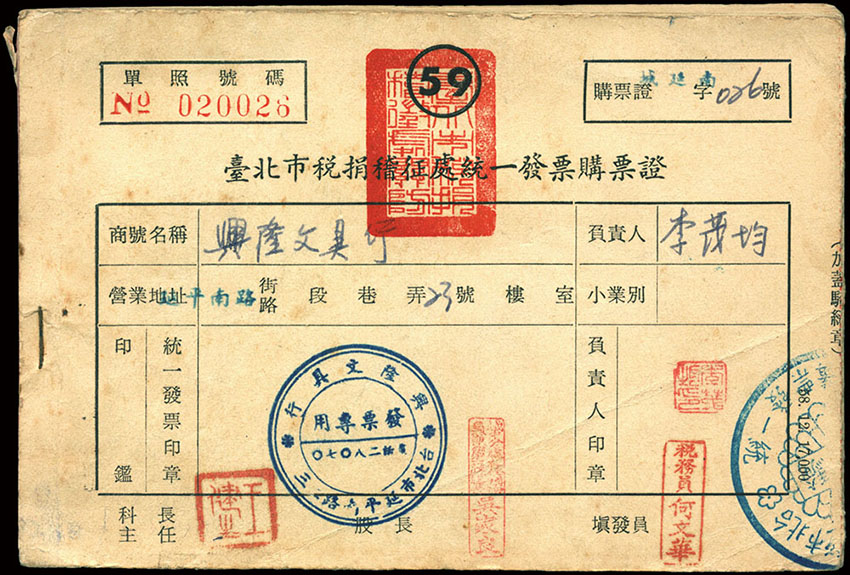 單照號碼
№ 020026
59
南延城
購票證 字026號
臺北市稅捐稽征處統一發票購票證
商號名稱 興隆文具行 負責人 李茂均
營業地址 延平南路 街路 段 巷 弄 23號 樓 室 小業別
印鑑 統一發票印章 負責人印章
興隆文具行
發票專用
電話二八〇七〇
台北市延平南路二三
稅務員 何文華
科長主任 股長 填發員
58. 12. 10,000
統一發